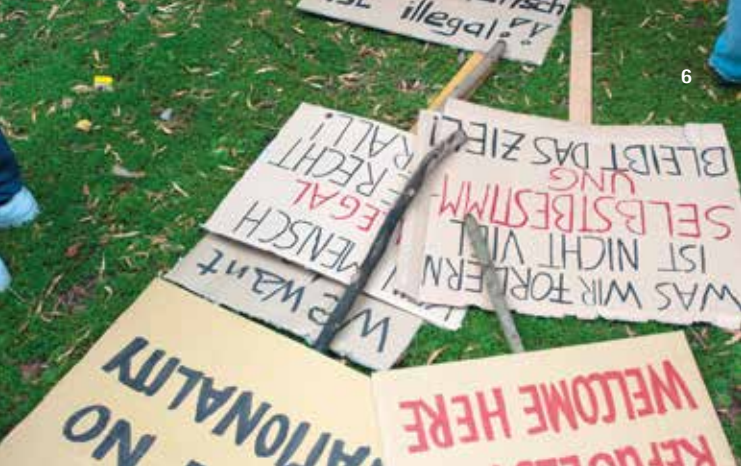 illegal!!
6
WAS WIR FORDERN
IST NICHT VIEL
SELBSTBESTIMM-
UNG
BLEIBT DAS ZIEL!
MENSCH
We want
NO
NATIONALITY
WELCOME HERE